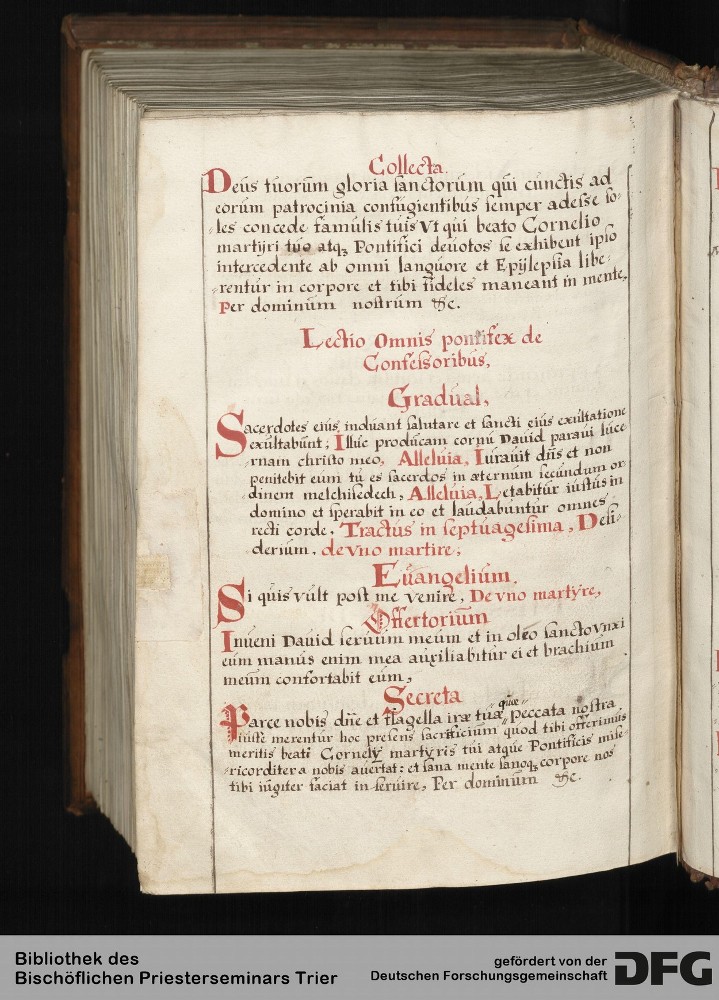 Collecta.
Deus tuorum gloria sanctorum qui cunctis ad
eorum patrocinia confugientibus semper adesse so-
les concede famulis tuis Vt qui beato Cornelio
martyri tuo atq₃ Pontifici deuotos se exhibent ipso
intercedente ab omni languore et Epijlepsia libe-
rentur in corpore et tibi fideles maneant in mente,
Per dominum nostrum &c.
Lectio Omnis pontifex de
Confessoribus,
Gradual,
Sacerdotes eius induant salutare et sancti eius exultatione
exultabunt; Illuc producam cornu Dauid paraui luce-
rnam christo meo, Alleluia, Iurauit dns et non
penitebit eum tu es sacerdos in æternum secundum or
dinem melchisedech, Alleluia, Letabitur iustus in
domino et sperabit in eo et laudabuntur omnes
recti corde, Tractus in septuagesima, Desi-
derium, de vno martire;
Euangelium.
Si quis vult post me venire, De vno martyre,
Offertorium
Inueni Dauid seruum meum et in oleo sancto vnxi
eum manus enim mea auxiliabitur ei et brachium
meum confortabit eum,
Secreta
Parce nobis dne et flagella iræ tuæ quæ peccata nostra
iuste merentur hoc presens sacrificium quod tibi offerimus
meritis beati Cornelÿ martyris tui atque Pontificis mise-
ricorditer a nobis auertat: et sana mente sanoq₃ corpore nos
tibi iugiter faciat inseruire, Per dominum &c.
Bibliothek des
Bischöflichen Priesterseminars Trier
gefördert von der
Deutschen Forschungsgemeinschaft
DFG